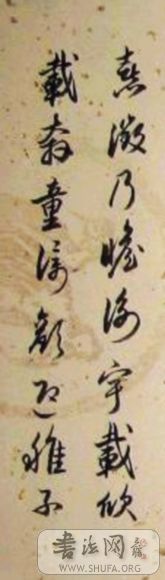 熹微乃瞻衡宇載欣
載奔童僕歡迎稚子
書法网
WWW.SHUFA.ORG